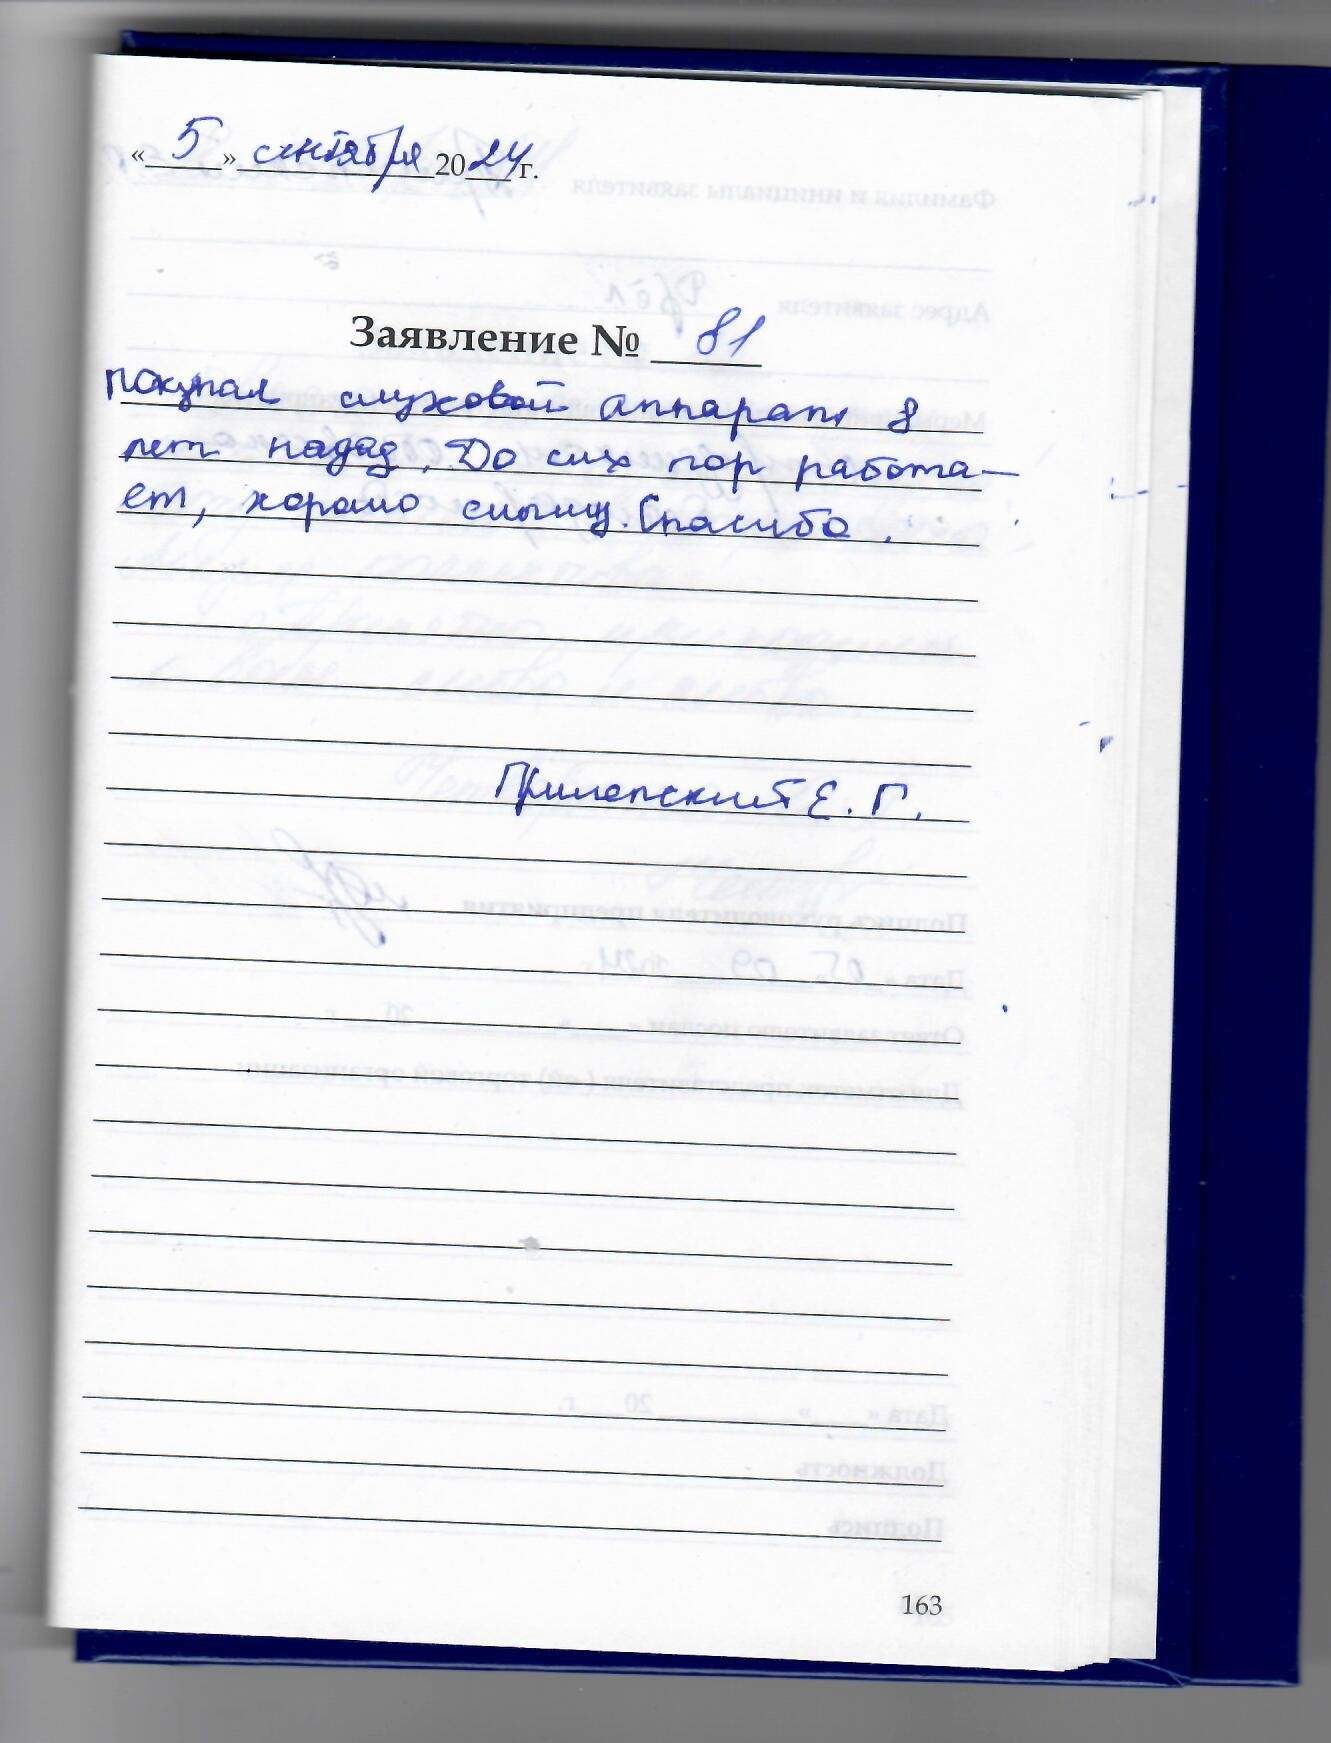 «5» сентября 2024 г.
Заявление № 81
Покупал слуховой аппарат 8
лет надад. До сих пор работа-
ет, хорошо слышу. Спасибо.
Прилепский Е. Г.
163